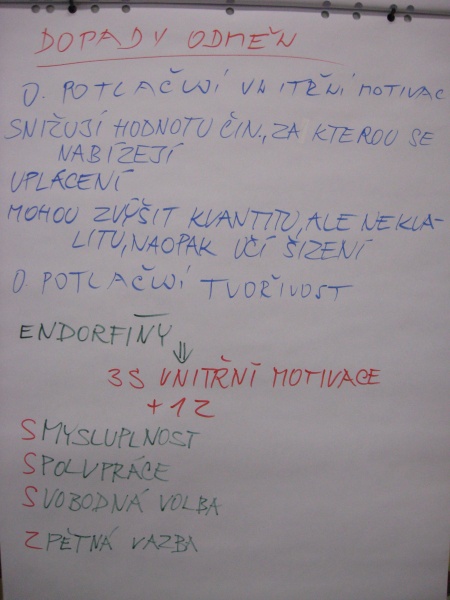 DOPADY ODMĚN
O. POTLAČUJÍ VNITŘNÍ MOTIVAC
SNIŽUJÍ HODNOTU ČIN., ZA KTEROU SE
NABÍZEJÍ
UPLÁCENÍ
MOHOU ZVÝŠIT KVANTITU, ALE NE KVA-
LITU, NAOPAK UČÍ ŠIZENÍ
O POTLAČUJÍ TVOŘIVOST
ENDORFINY
⇓
3S VNITŘNÍ MOTIVACE
+1Z
SMYSLUPLNOST
SPOLUPRÁCE
SVOBODNÁ VOLBA
ZPĚTNÁ VAZBA